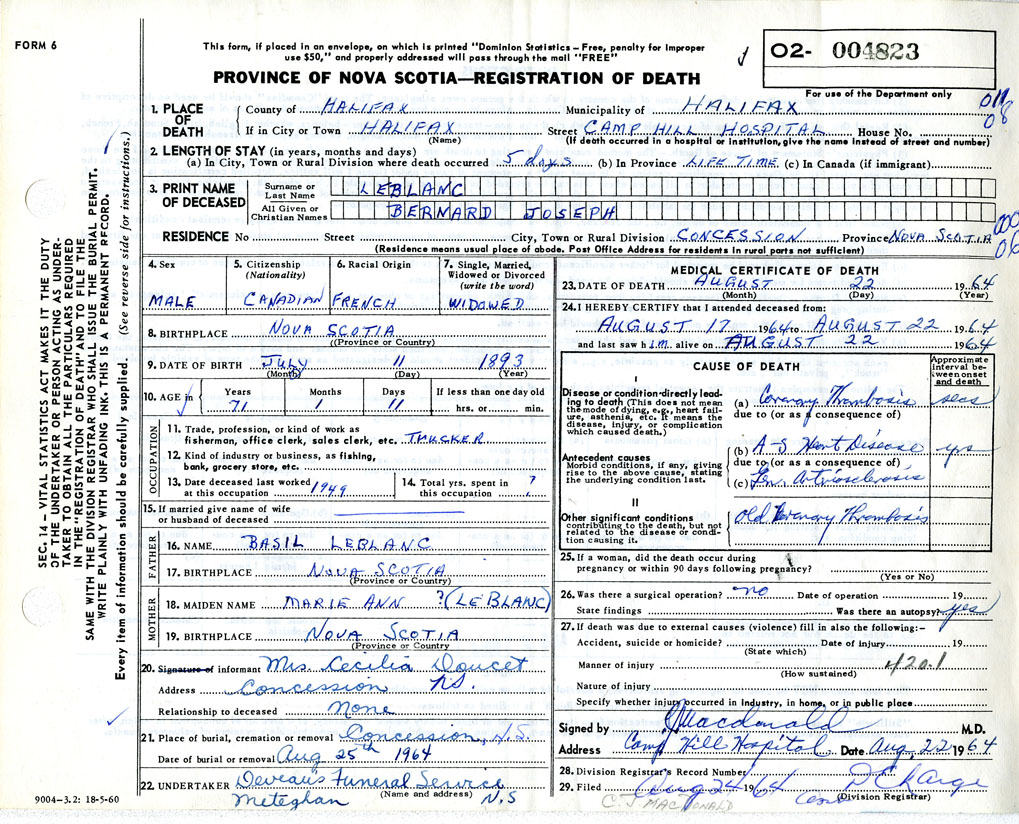 FORM 6
This form, if placed in an envelope, on which is printed "Dominion Statistics – Free, penalty for improper
use $50," and properly addressed will pass through the mail "FREE"
PROVINCE OF NOVA SCOTIA—REGISTRATION OF DEATH
02- 004823
For use of the Department only
1. PLACE OF DEATH
County of HALIFAX Municipality of HALIFAX
If in City or Town HALIFAX Street CAMP HILL HOSPITAL House No.
(Name) (If death occurred in a hospital or institution, give the name instead of street and number)
2. LENGTH OF STAY (in years, months and days)
(a) In City, Town or Rural Division where death occurred 5 days (b) In Province LIFE TIME (c) In Canada (if immigrant)
3. PRINT NAME OF DECEASED
Surname or Last Name LEBLANC
All Given or Christian Names BERNARD JOSEPH
RESIDENCE No Street City, Town or Rural Division CONCESSION Province NOVA SCOTIA
(Residence means usual place of abode. Post Office Address for residents in rural parts not sufficient)
4. Sex MALE
5. Citizenship (Nationality) CANADIAN
6. Racial Origin FRENCH
7. Single, Married, Widowed or Divorced (write the word) WIDOWED
8. BIRTHPLACE NOVA SCOTIA
(Province or Country)
9. DATE OF BIRTH JULY 11 1893
(Month) (Day) (Year)
10. AGE in Years 71 Months 1 Days 11 If less than one day old hrs. or min.
OCCUPATION
11. Trade, profession, or kind of work as
fisherman, office clerk, sales clerk, etc. TRUCKER
12. Kind of industry or business, as fishing,
bank, grocery store, etc.
13. Date deceased last worked at this occupation 1949
14. Total yrs. spent in this occupation ?
15. If married give name of wife
or husband of deceased
FATHER
16. NAME BASIL LEBLANC
17. BIRTHPLACE NOVA SCOTIA
(Province or Country)
MOTHER
18. MAIDEN NAME MARIE ANN ?(LEBLANC)
19. BIRTHPLACE NOVA SCOTIA
(Province or Country
20. Signature of informant Mrs Cecilia Doucet
Address Concession NS.
Relationship to deceased None
21. Place of burial, cremation or removal Concession, N.S.
Date of burial or removal Aug 25th 1964
22. UNDERTAKER Deveau's Funeral Service
(Name and address)
Meteghan N.S
9004-3.2: 18-5-60
MEDICAL CERTIFICATE OF DEATH
23. DATE OF DEATH AUGUST 22 1964
(Month) (Day) (Year)
24. I HEREBY CERTIFY that I attended deceased from:
AUGUST 17 1964 to AUGUST 22 1964
and last saw h im alive on AUGUST 22 1964
CAUSE OF DEATH
Approximate interval between onset and death
I
Disease or condition directly leading to death (This does not mean the mode of dying, e.g., heart failure, asthenia, etc. It means the disease, injury, or complication which caused death.)
(a) Coronary Thrombosis secs
due to (or as a consequence of)
Antecedent causes
Morbid conditions, if any, giving rise to the above cause, stating the underlying condition last.
(b) A-S Heart Disease yrs
due to (or as a consequence of)
(c) Gen. Arteriosclerosis
II
Other significant conditions contributing to the death, but not related to the disease or condition causing it.
Old Coronary Thrombosis
25. If a woman, did the death occur during
pregnancy or within 90 days following pregnancy?
(Yes or No)
26. Was there a surgical operation? no Date of operation 19
State findings Was there an autopsy? yes
27. If death was due to external causes (violence) fill in also the following:–
Accident, suicide or homicide? Date of injury 19
(State which)
Manner of injury 420.1
(How sustained)
Nature of injury
Specify whether injury occurred in industry, in home, or in public place
Signed by J Macdonald M.D.
Address Camp Hill Hospital Date Aug. 22 1964
28. Division Registrar's Record Number
29. Filed Aug 24 1964
(Division Registrar)
C. J MACDONALD
SEC. 14 – VITAL STATISTICS ACT MAKES IT THE DUTY
OF THE UNDERTAKER OR PERSON ACTING AS UNDER-
TAKER TO OBTAIN ALL THE PARTICULARS REQUIRED
IN THE "REGISTRATION OF DEATH" AND TO FILE THE
SAME WITH THE DIVISION REGISTRAR WHO SHALL ISSUE THE BURIAL PERMIT.
WRITE PLAINLY WITH UNFADING INK. THIS IS A PERMANENT RECORD.
Every item of information should be carefully supplied. (See reverse side for instructions.)